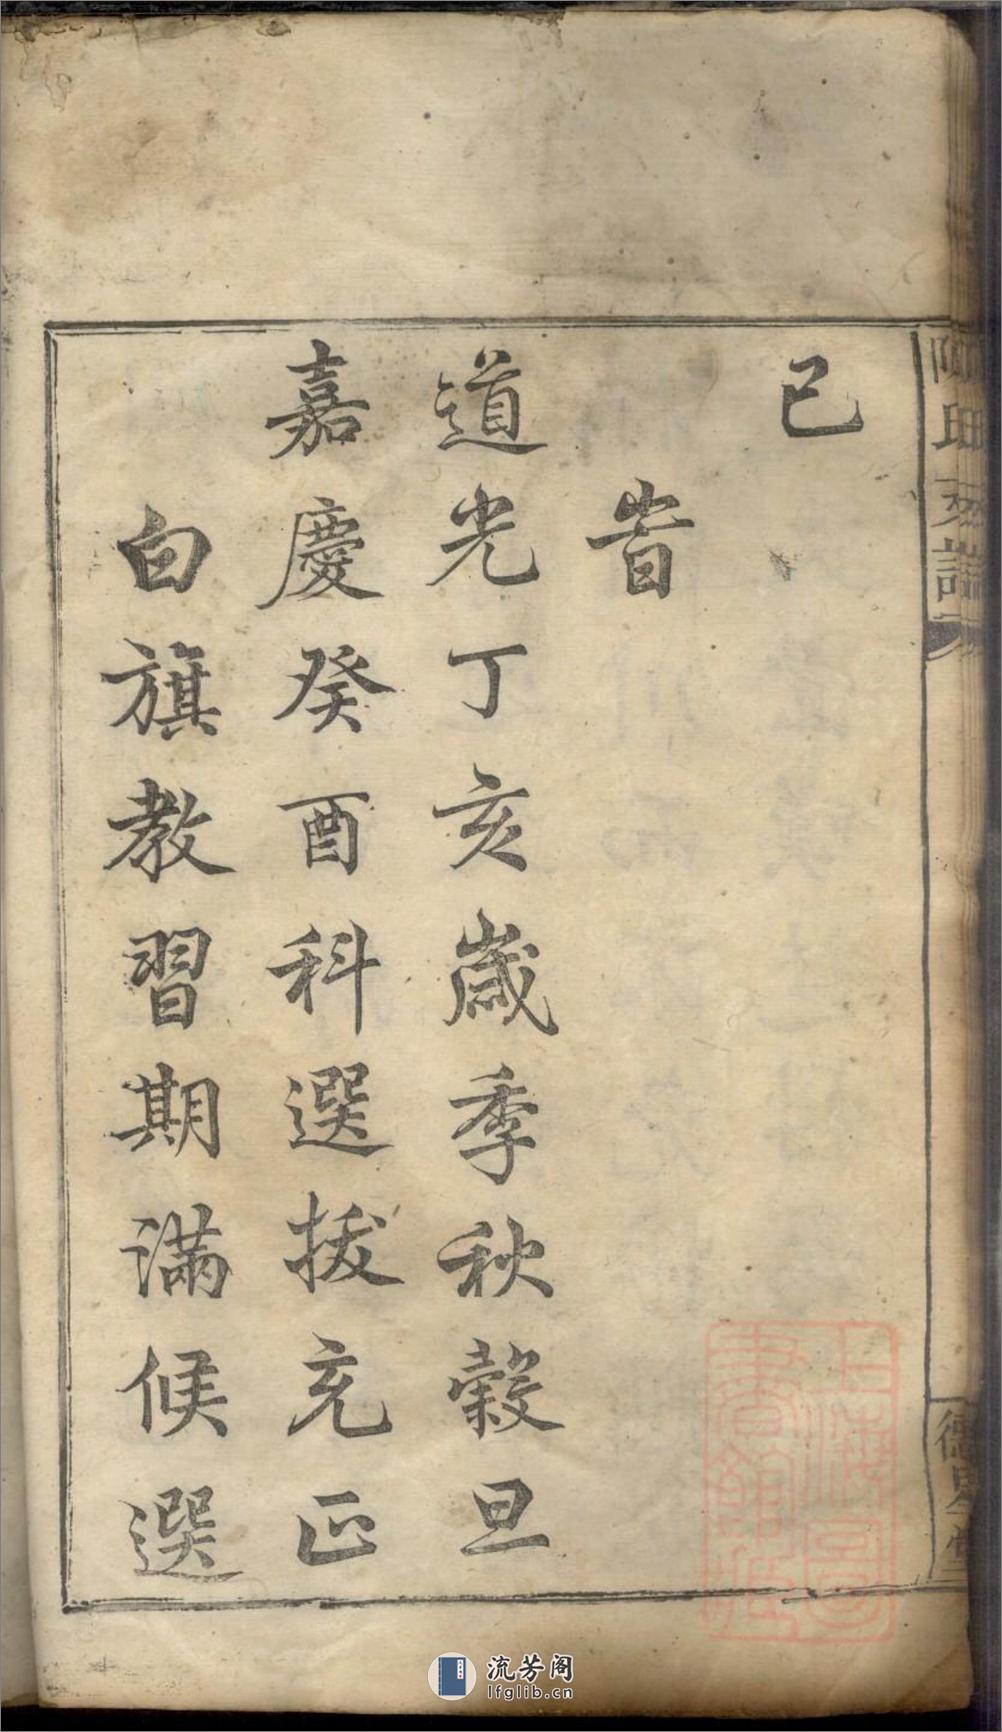 已
昔
道光丁亥歲季秋穀旦
嘉慶癸酉科選拔充正
白旗教習期滿候選
上海圖
書館藏
流芳阁
lfglib.cn